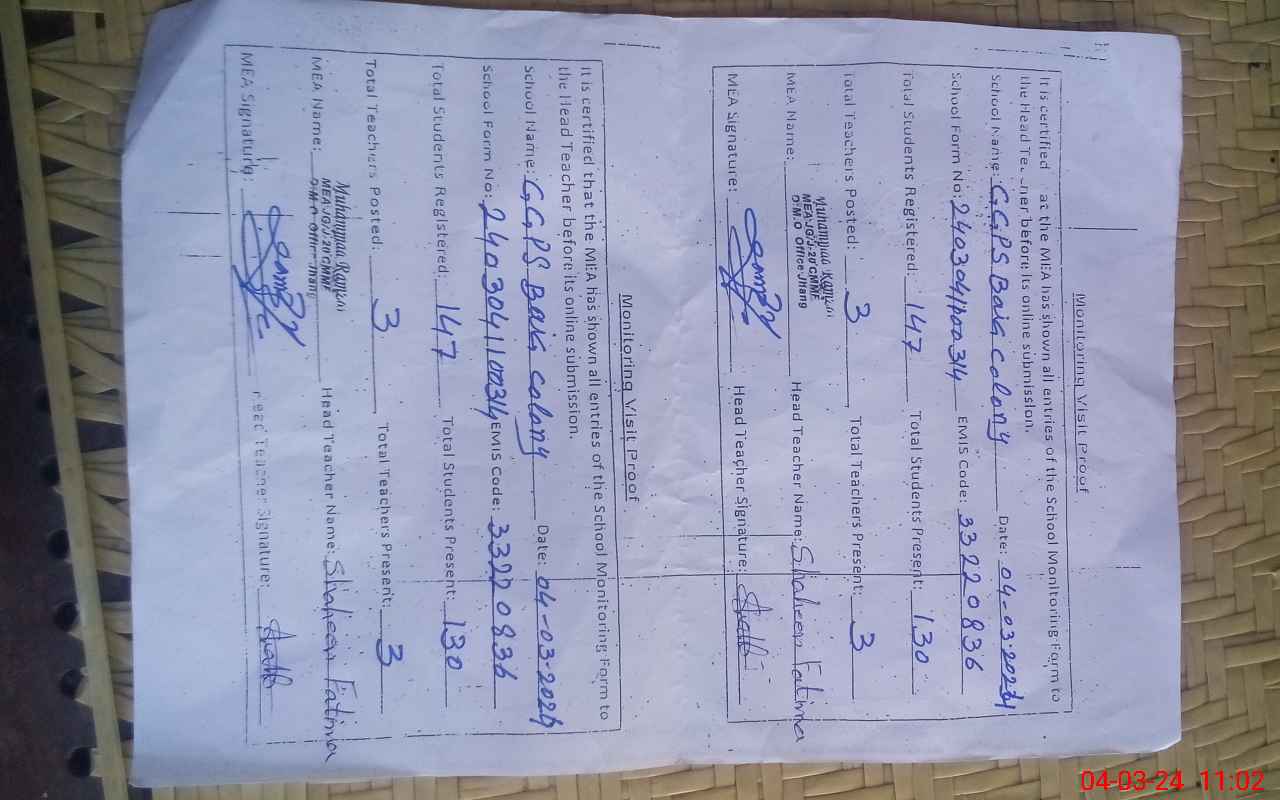 Monitoring Visit Proof
It is certified at the MEA has shown all entries of the School Monitoring Form to
the Head before its online submission.
School Name: G.G.PS Baig colony Date: 04-03-2024
School Form No: 2403041100314 EMIS Code: 33220836
Total Students Registered: 147 Total Students Present: 130
Total Teachers Posted: 3 Total Teachers Present: 3
MEA Name: Head Teacher Name: Shaheen Fatima
MEA-JG/J-20 CMMF
D.M.O Office Jhang
MEA Signature: Head Teacher Signature:
Monitoring Visit Proof
It is certified that the MEA has shown all entries of the School Monitoring Form to
the Head Teacher before its online submission.
School Name: G.G.PS Baig colony Date: 04-03-2024
School Form No: 2403041100314 EMIS Code: 33220836
Total Students Registered: 147 Total Students Present: 130
Total Teachers Posted: 3 Total Teachers Present: 3
MEA Name: Head Teacher Name: Shaheen Fatima
MEA-JG/J-20 CMMF
D.M.O Office Jhang
MEA Signature: Head Teacher Signature:
04-03-24 11:02